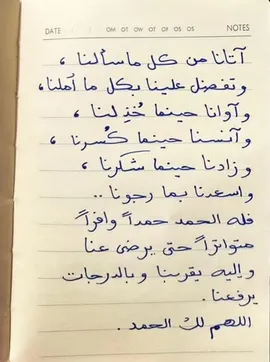 DATE / / OM OT OW OT OF OS OS NOTES
آتانا من كل ما سألنا ،
وتفضل علينا بكل ما أملنا،
وآوانا حينما خُذِلنا ،
و آنسنا حينما كُسرنا ،
و زادنا حينما شكرنا ،
و اسعدنا بما رجونا ..
فله الحمد حمداً وافراً
متواتراً حتى يرضى عنا
و إليه يقربنا وبالدرجات
يرفعنا .
اللهم لك الحمد .